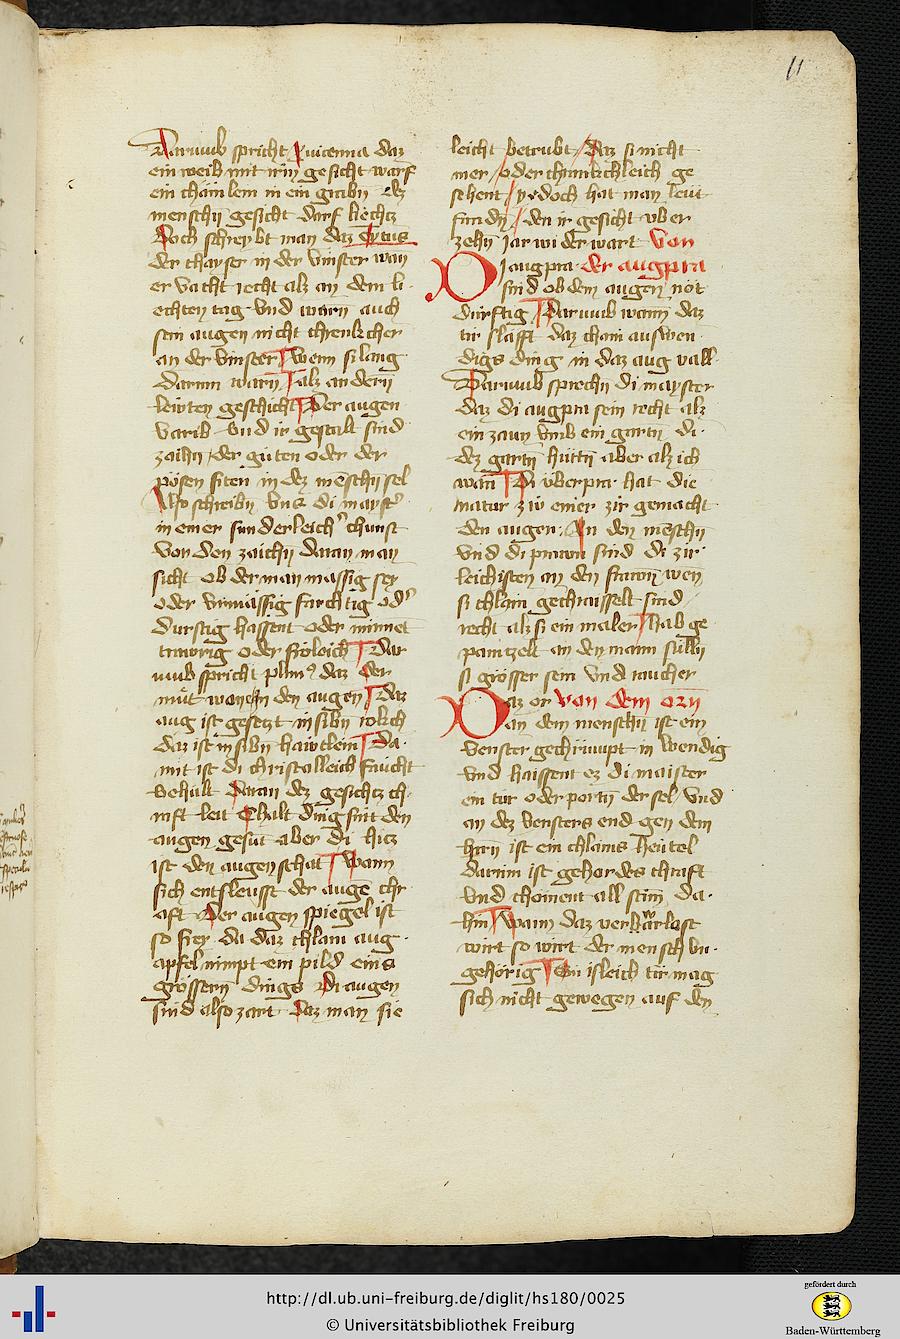 11
Darumb spricht Auicenna daz
ein weib mit irm gesicht warf
ein chämlem in ein grubn dez
menschn gesicht darf liechtz
Doch schreybt man daz Tytus
der chayser in der vinster wan
er vacht recht alz an dem li-
echten tag vnd warn auch
sein augen nicht chrenkcher
an der vinster wenn si lang
darinn warn alz andern
lewten geschicht Der augen
varib vnd ir gestalt sind
zaihn der guten oder der
pösen siten in dez menschn sel
Also schreibn vns di mayster
in einer sunderleich chunst
von den zaichn daran man
sicht ob der man mässig sey
oder vnmässig forchtig oder
durstig hassent oder minnet
trawrig oder frölich Dar
umb spricht plinius daz der
müt wonehn den augen daz
aug ist gesetzt in sibn rokch
daz ist in sibn hawtlein Da
mit ist di christalleich faucht
behalt daran dez gesichtz ch-
raft leit Chalt ding sint den
augen gesunt aber di hicz
ist den augen schat wann
sich entsleusst der auge chr
aft Der augen spiegel ist
so fier da daz chlain aug
apfel nimpt ein pild eins
grössern dings Di augen
sind also zart daz man sie
leicht betrubt daz si nicht
mer oder chunkchleich ge
sehent yedoch hat man leut
fundn den ir gesicht vber
zehn jar wider wart Von
Di augpra der augpra
sind ob dem augen nöt
dürftig Darumb wann daz
tir slafft daz chain auswen
digs ding in daz aug vall
Darumb sprechn di mayster
daz di augpra sein recht alz
ein zaun vmb ein gartn di
dez gartn hüttn aber alz ich
wän Di vberpra hat die
natur zu einer zir gemacht
den augen An den menschn
vnd di prawn sind di zir
leichisten an den frawn wen
si chlain gechrausselt sind
recht alz si ein maler hab ge
pantzelt an den mann sulln
si grösser sein vnd raucher
Daz or von dem orn
an dem menschn ist ein
venster gechrümpt in wendig
vnd haissent ez di maister
ein tür oder portn der sel vnd
an dez vensters end gen dem
hirn ist ein chlains heutel
darinn ist gehordes chraft
vnd choment all stim da
hin wann daz verkärlost
wirt so wirt der mensch vn
gehörig Ein isleich tir mag
sich nicht gewegen auf den
http://dl.ub.uni-freiburg.de/diglit/hs180/0025
© Universitätsbibliothek Freiburg
gefördert durch
Baden-Württemberg